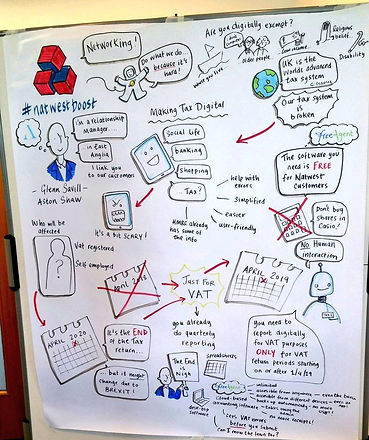 Networking!
Do what we do
because it's
hard!
Are you digitally exempt?
where you live
older people
low income
Religious
belief
Disability
UK is the
worlds advanced
tax system
Our tax system
is
broken
#natwestboost
I'm a relationship
manager....
in East
Anglia
I link you
to our customers
- Glenn Savill -
Aston Shaw
Making Tax Digital
Social life
banking
shopping
TAX?
It's a bit SCARY!
HMRC already
has some of
the info
help with
errors
Simplified
easier
user-friendly
free agent
The software you
need is FREE
for
Natwest
Customers
Don't buy
shares in
Casio!
No Human
interaction
Who will be
affected
Vat registered
Self employed
?
APRIL 2018
JUST FOR
VAT
APRIL 2019
APRIL 2020
It's the END
of the Tax
return...
... but it might
change due to
BREXIT!
you already
do quarterly
reporting
The End
is
Nigh
you need to
report digitally
for VAT
purposes
ONLY for VAT
return periods starting
on or after 1/4/19
spreadsheets
desktop
software
cloud-based
accounting software
freeagent
- unlimited
- accessible from anywhere - even the beach
- no more
- no more receipts!
Zero VAT errors
before you submit
Can I move the item too?